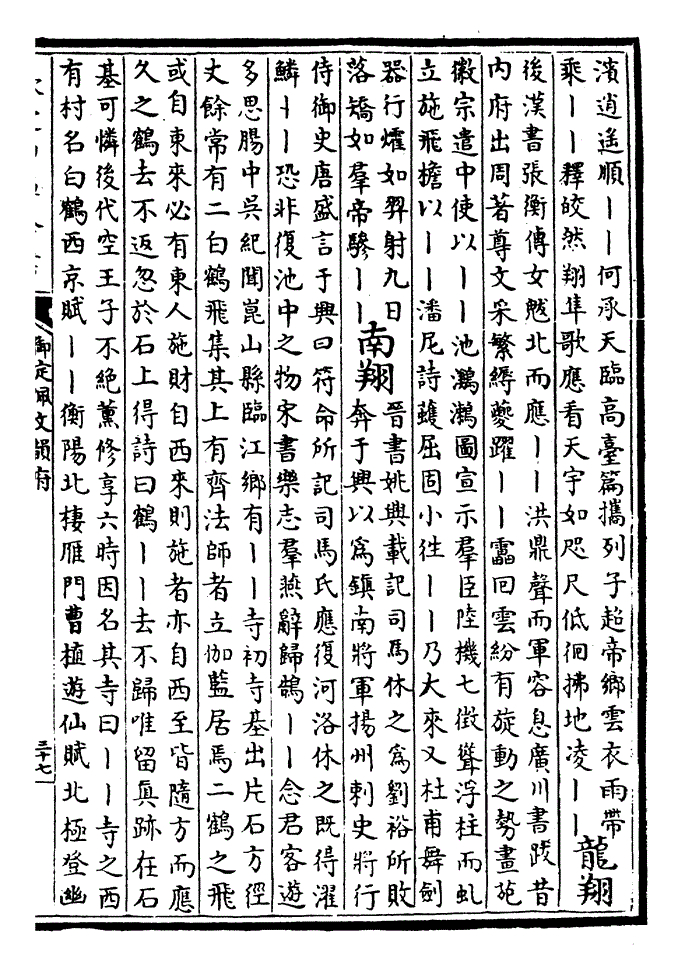 濱逍遙順丨丨何承天臨高臺篇攜列子超帝鄉雲衣雨帶
乘丨丨釋皎然翔隼歌應看天宇如咫尺低徊拂地凌丨丨
龍翔
後漢書張衡傳女魃北而應丨丨洪鼎聲而軍容息廣川書跋昔
內府出周著尊文采繁縟夔躍丨丨靁回雲紛有旋動之勢畫苑
徽宗遣中使以丨丨池鸂鶒圖宣示羣臣陸機七徵聳浮柱而虬
立施飛檐以丨丨潘尼詩蠖屈固小往丨丨乃大來又杜甫舞劍
器行㸌如羿射九日
落矯如羣帝驂丨丨
南翔
晉書姚興載記司馬休之爲劉裕所敗
奔于興以爲鎮南將軍揚州刺史將行
侍御史唐盛言于興曰符命所記司馬氏應復河洛休之既得濯
鱗丨丨恐非復池中之物宋書樂志羣燕辭歸鵠丨丨念君客遊
多思腸中吳紀聞崑山縣臨江鄉有丨丨寺初寺基出片石方徑
丈餘常有二白鶴飛集其上有齊法師者立伽藍居焉二鶴之飛
或自東來必有東人施財自西來則施者亦自西至皆隨方而應
久之鶴去不返忽於石上得詩曰鶴丨丨去不歸唯留眞跡在石
基可憐後代空王子不絕薰修享六時因名其寺曰丨丨寺之西
有村名白鶴西京賦丨丨衡陽北棲雁門曹植遊仙賦北極登幽
御定佩文韻府
三十七